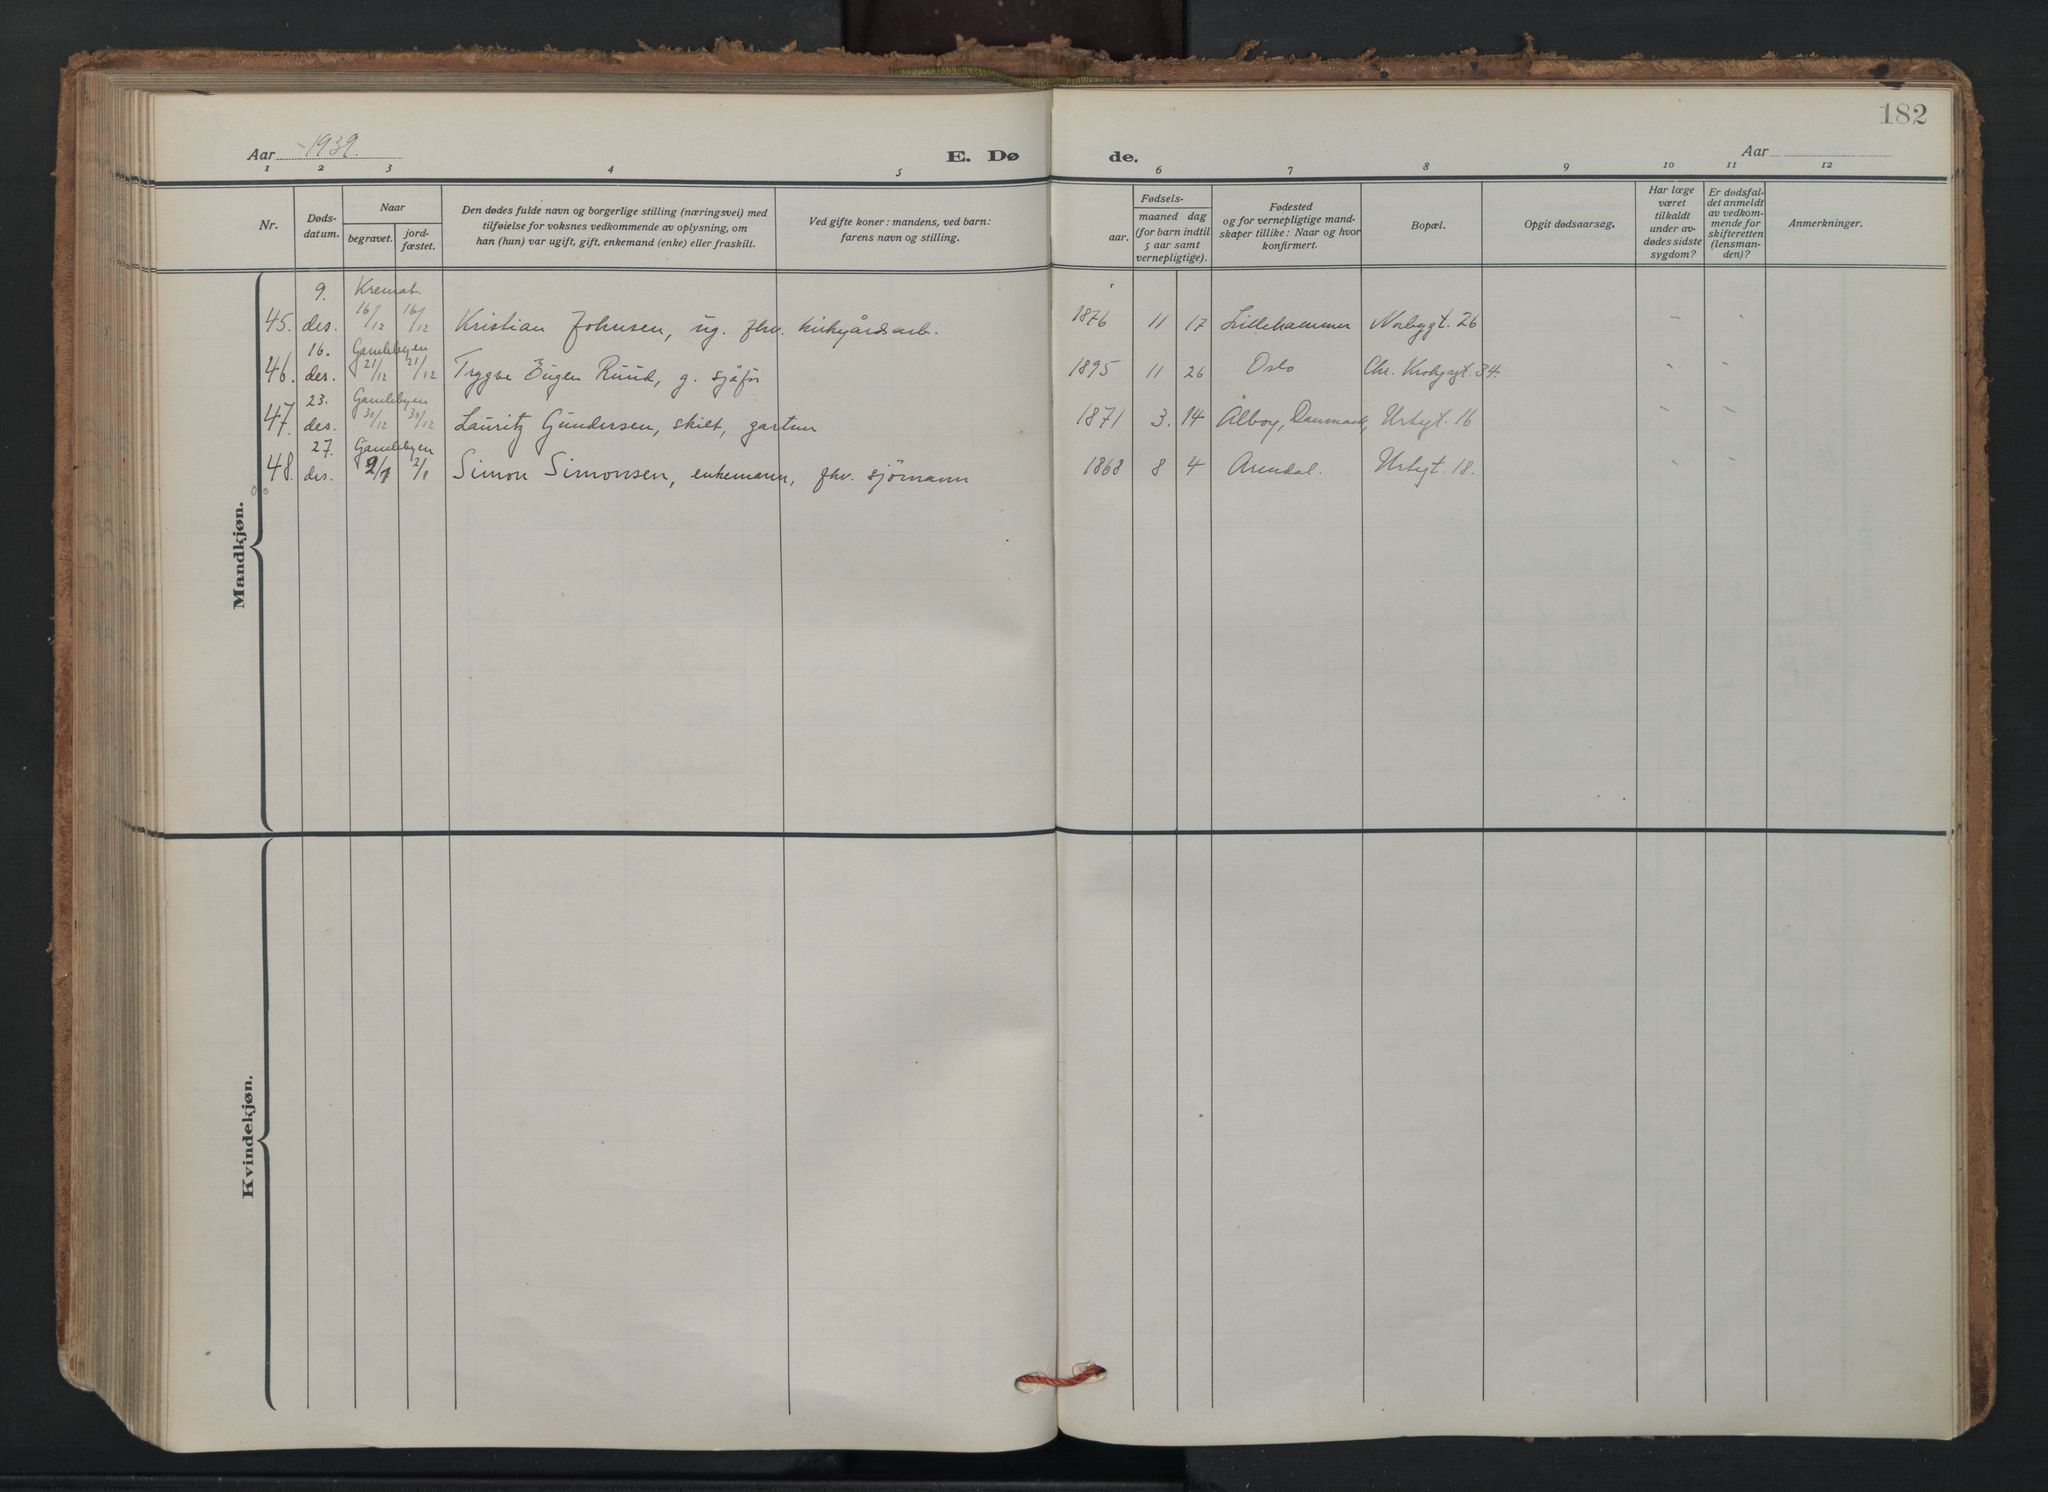 182
Aar 1939. E. Dø de. Aar
1 2 3 4 5 6 7 8 9 10 11 12
Nr.
Døds-
datum.
Naar
begravet.
jord-
fæstet.
Den dødes fulde navn og borgerlige stilling (næringsvei) med
tilføielse for voksnes vedkommende av oplysning, om
han (hun) var ugift, gift, enkemand (enke) eller fraskilt.
Ved gifte koner: mandens, ved barn:
farens navn og stilling.
Fødsels-
aar.
maaned dag
(for barn indtil
5 aar samt
vernepligtige).
Fødested
og for vernepligtige mand-
skaper tillike: Naar og hvor
konfirmert.
Bopæl.
Opgit dødsaarsag.
Har læge
været
tilkaldt
under av-
dødes sidste
sygdom?
Er dødsfal-
det anmeldt
av vedkom-
mende for
skifteretten
(lensman-
den)?
Anmerkninger.
Mandkjøn.
9. Kremat.
45. des. 16/12 16/12 Kristian Johnsen, ug. fhv. kirkegårdsarb. 1876 11 17 Lillehammer Norbygt. 26 - -
16. Gamlebyen
46. des. 21/12 21/12 Trygve Eugen Ruud, g. sjåfør 1895 11 26 Oslo Chr. Krohgsgt. 34. - -
23. Gamlebyen
47. des. 30/12 30/12 Lauritz Gundersen, skilt, gartner 1871 3. 14 Ålborg, Danmark, Urtegt. 16 - -
27. Gamlebyen
48. des. 2/1 2/1 Simon Simonsen, enkemann, fhv. sjömann 1868 8 4 Arendal. Urtegt. 18. - -
Kvindekjøn.